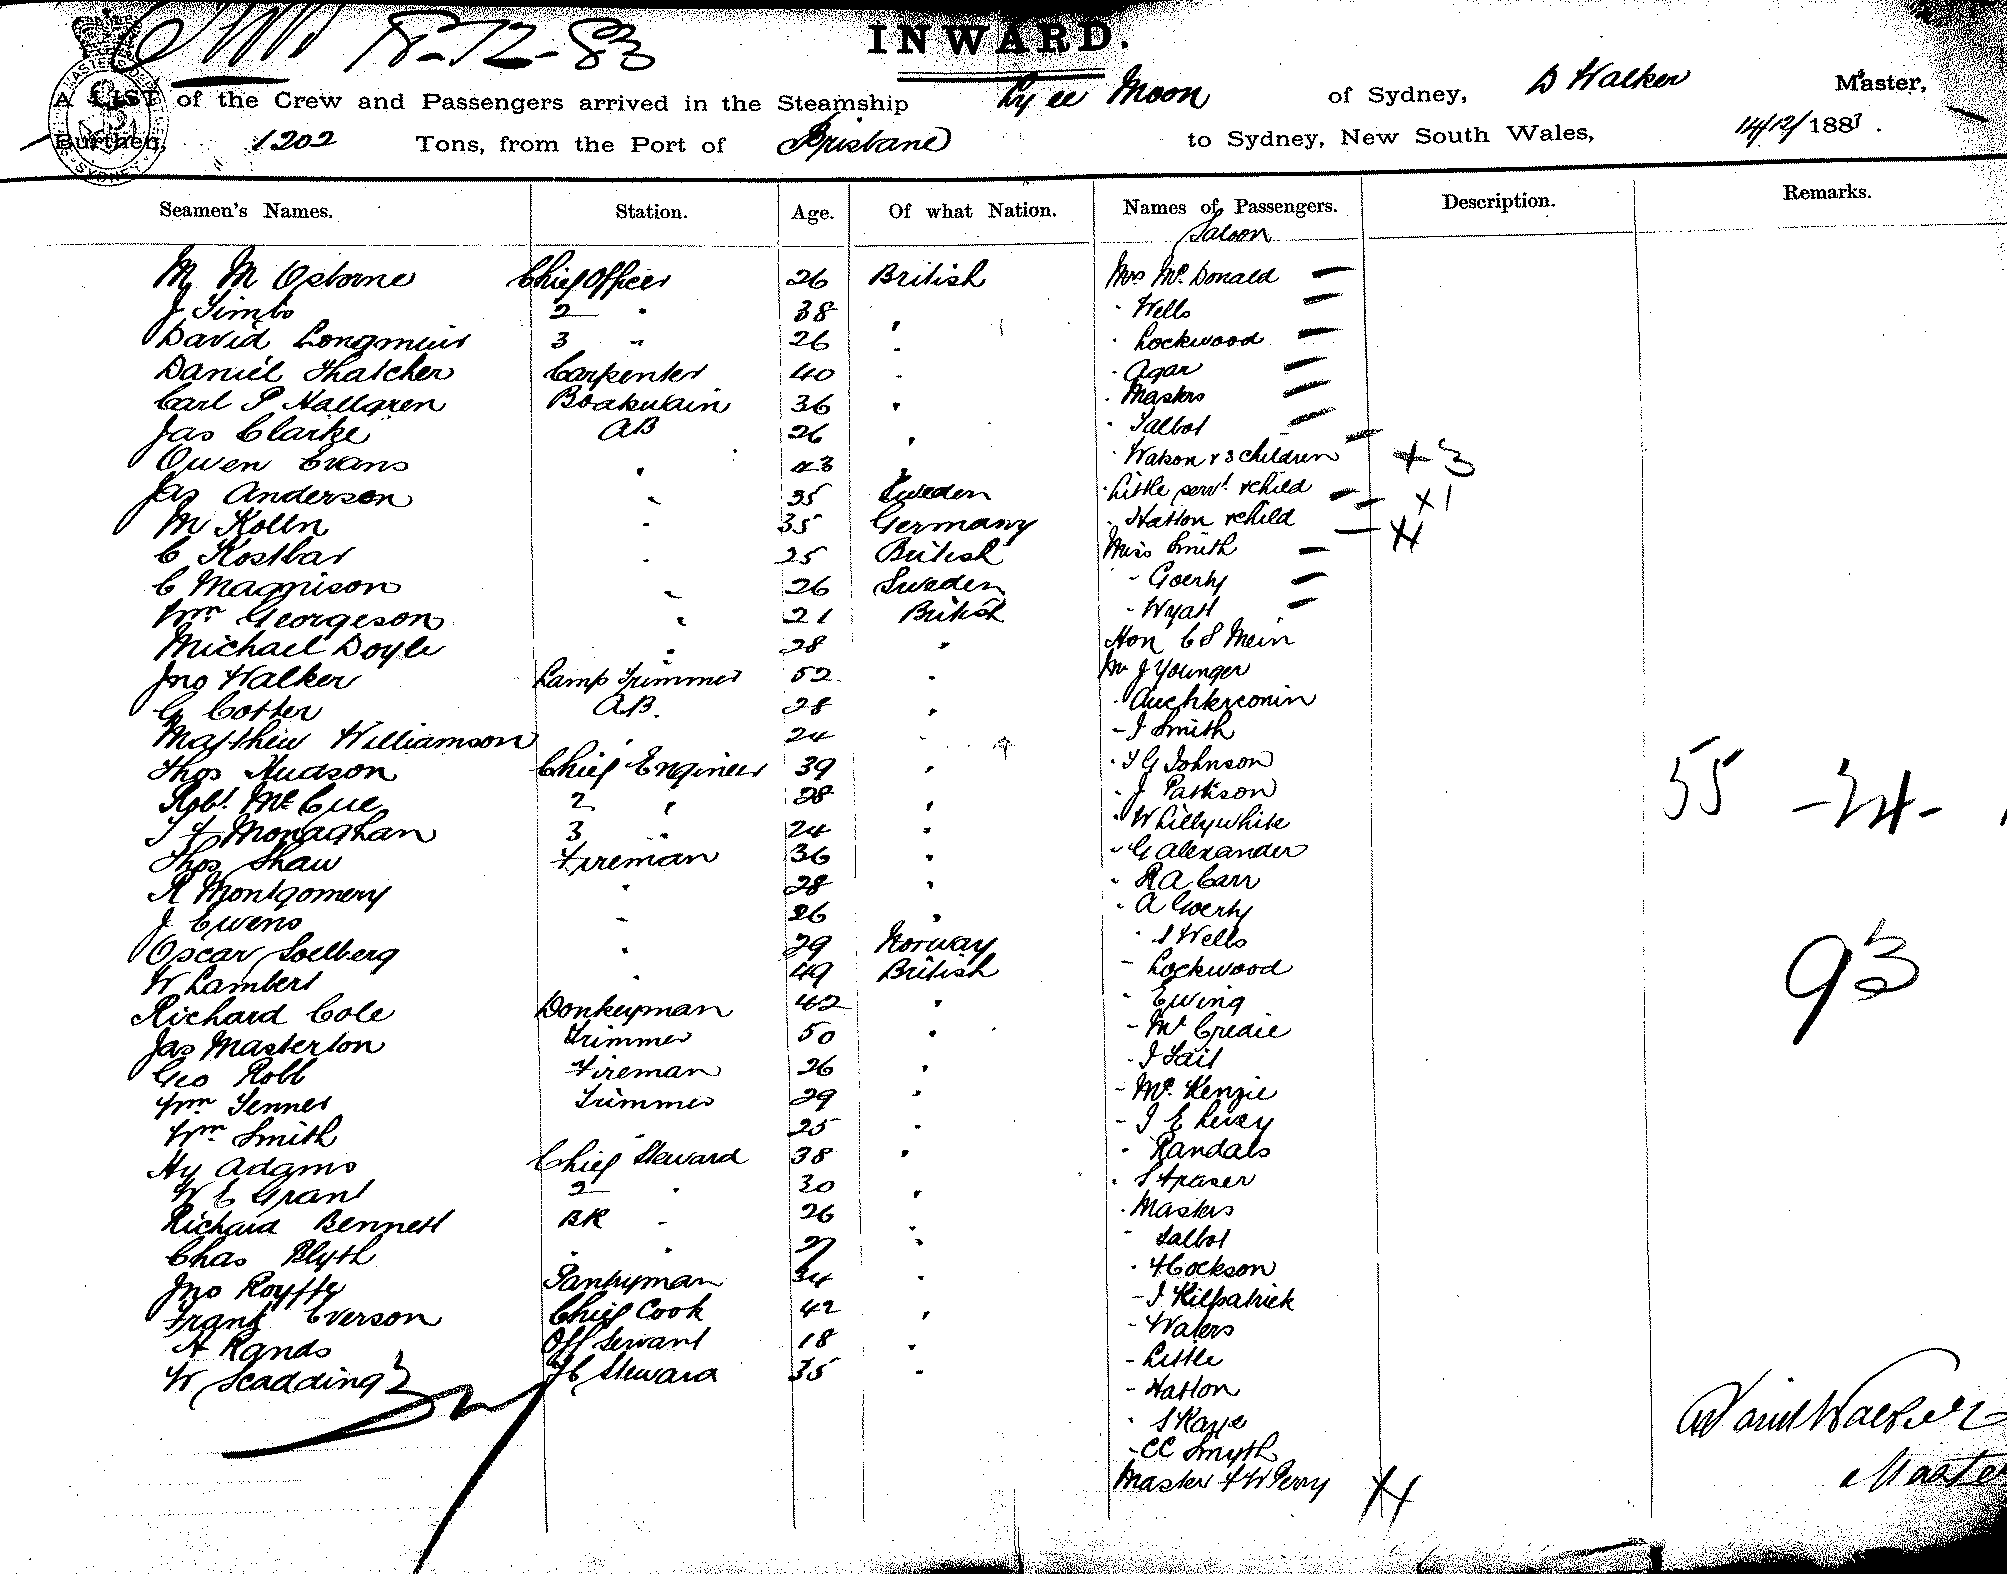 18-12-83
INWARD.
A LIST of the Crew and Passengers arrived in the Steamship Ly ee Moon of Sydney, D Walker Master,
Burthen, 1202 Tons, from the Port of Brisbane to Sydney, New South Wales, 14/12/1883.
Seamen's Names. Station. Age. Of what Nation. Names of Passengers. Description. Remarks.
Saloon
M M Osborne Chief Officer 26 British Mrs Mc Donald —
J Timbs 2 " 38 " " Wells —
David Longmuir 3 " 26 " " Lockwood —
Daniel Thatcher Carpenter 40 " " Agar —
Carl P Hallgren Boatswain 36 " " Masters —
Jas Clarke AB 26 " " Talbot —
Owen Evans " 43 " Watson & 3 children — + 3
Jas Anderson " 35 Sweden " Little servt & child — — + 1
M Kolln " 35 Germany " Hatton & child — +1
C Kostbar " 25 British Miss Smith —
C Magnison " 26 Sweden " Goerty —
Wm Georgeson " 21 British " Wyatt —
Michael Doyle " 28 " Hon C S Mein
Jno Walker Lamp Trimmer 52 " Mr J Younger
G Cotter AB. 28 "
Matthew Williamson " 24 " " J Smith
Thos Hudson Chief Engineer 39 " " T G Johnson
Robt Mc Cue 2 " 28 " " J Pattison
J F Monaghan 3 " 24 " " W Lillywhite
Thos Shaw Fireman 36 " " G Alexander
55 -34-
R Montgomery " 28 " " R A Carr
J Ewens " 26 " " A Goerty
Oscar Soelberg " 29 Norway " S Wells
W Lambert " 49 British " Lockwood
93
Richard Cole Donkeyman 42 " " Ewing
Jas Masterton Trimmer 50 " " Mc Credie
Geo Robb Fireman 26 " " J Tait
Wm Jenner Trimmer 29 " " Mc Kenzie
Wm Smith " 25 " " J E Levey
Hy Adams Chief Steward 38 " " Randals
W E Grant 2 " 30 " " S Fraser
Richard Bennett BR " 26 " " Masters
Chas Blyth " " 27 " " Talbot
Jno Pantryman 34 " " Hockson
Frank Everson Chief Cook 42 " " J Kilpatrick
A Rands Off Servant 18 " " Waters
W Scadding FC Steward 35 " " Little
" Hatton
" S Kaye
" CC Smyth
Master F W Perry +1
Daniel Walker
Master